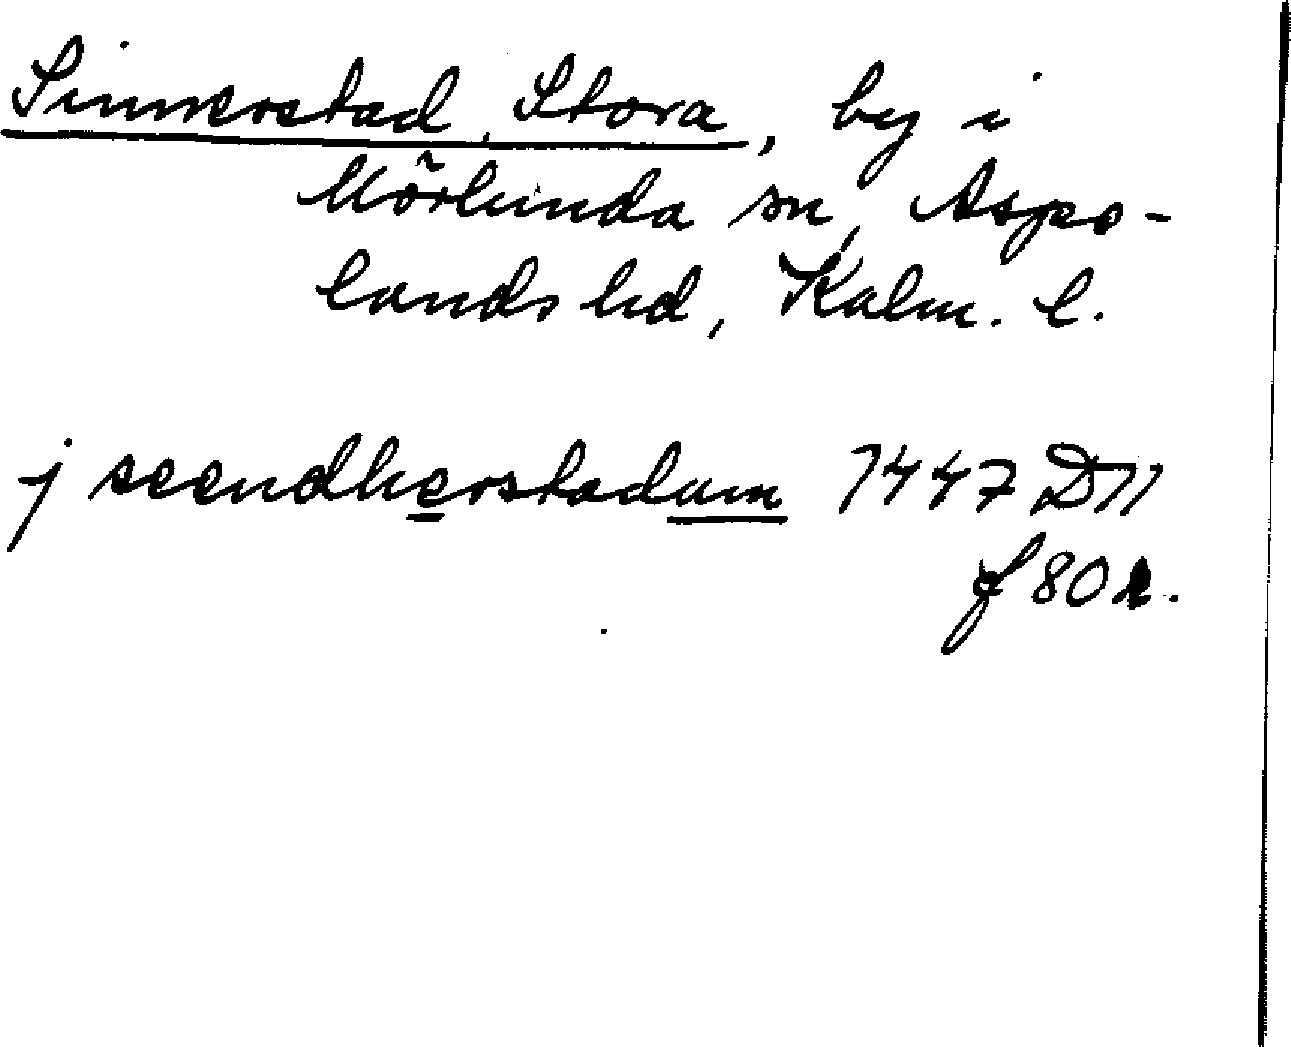 Sinnerstad, Stora, by i
Mörlunda sn, Aspe-
lands hd, Kalm. l.
j seendherstadum 1447 D11
f 80 r.